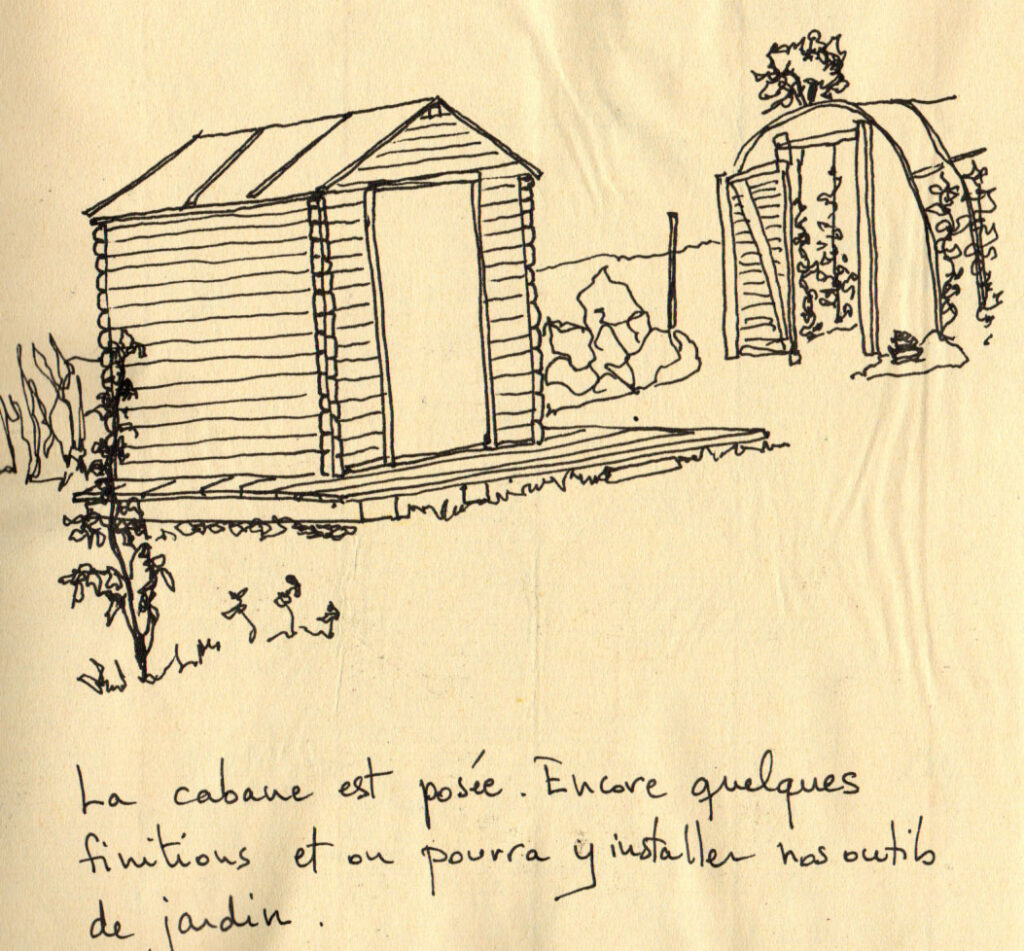 La cabane est posée. Encore quelques
finitions et on pourra y installer nos outils
de jardin.